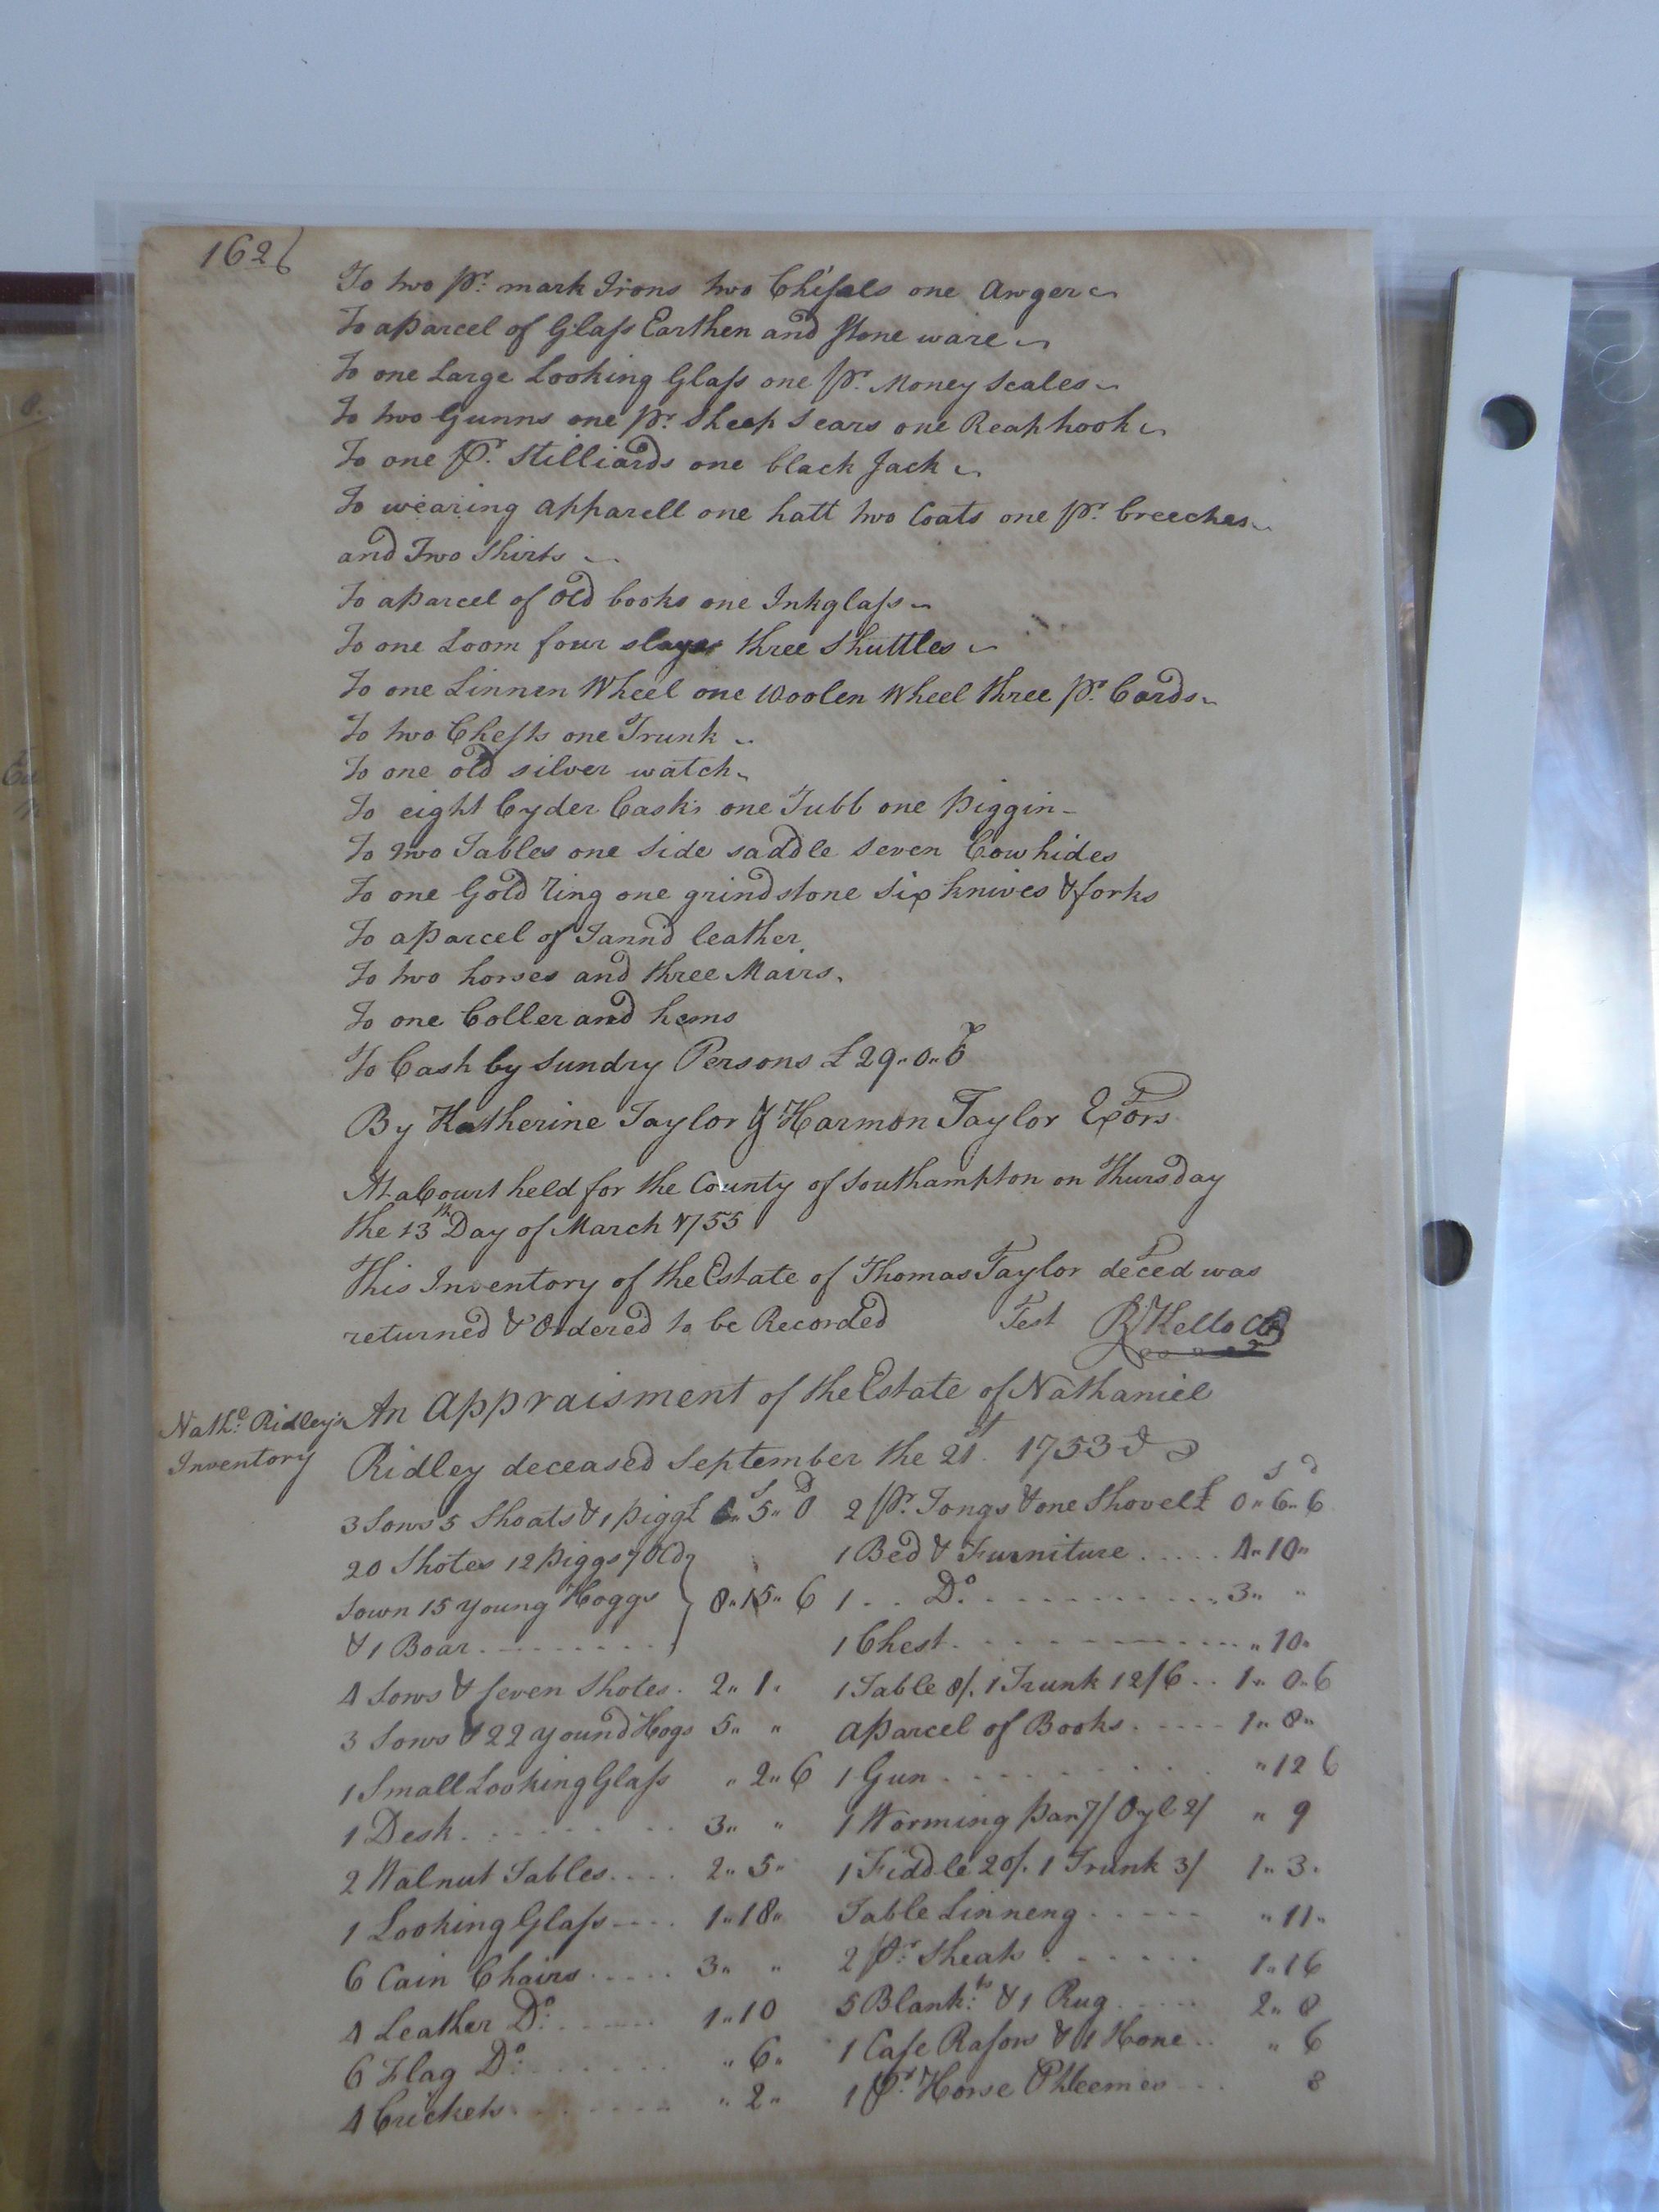 162
To two pr. mark Irons two Chisals one Awger
To a parcel of Glass Earthen and Stone ware
To one Large Looking Glass one pr. Money Scales
To two Gunns one pr. Sheep Sears one Reap hook
To one Pr. Stilliards one black Jack
To wearing apparell one hatt two Coats one pr. breeches
and Two Shirts
To a parcel of old books one Inkglass
To one Loom four slayes three Shuttles
To one Linnen Wheel one Woolen Wheel three pr. Cards
To two Chests one Trunk
To one old silver watch
To eight Cyder Casks one Tubb one piggin
To two Tables one Side saddle Seven Cow hides
To one Gold Ring one grindstone Six knives & forks
To a parcel of Tann'd leather
To two horses and three Mairs
To one Coller and hems
To Cash by Sundry Persons £29.. 0.. 6
By Katherine Taylor & Harmon Taylor Exors
At a Court held for the County of Southampton on Thursday
the 13th Day of March 1755
This Inventory of the Estate of Thomas Taylor deced was
returned & Ordered to be Recorded Test R Kello
Nathl. Ridley's
Inventory
An Appraisment of the Estate of Nathaniel
Ridley deceased September the 21st. 1753
S D S d
3 Sows 5 Shoats & 1 pigg £ 5.. 0 2 Pr. Tongs & one Shovel £ 0.. 6.. 6
20 Shotes 12 piggs 7 Old 1 Bed & Furniture ..... 4.. 10..
Sown 15 young Hoggs 8.. 15.. 6 1 .. Do. .......... 3.. ..
& 1 Boar ........ 1 Chest .......... .. 10..
4 Sows & Seven Shotes . 2.. 1.. 1 Table 8/. 1 Trunk 12/6 .. 1.. 0.. 6
3 Sows & 22 yound Hogs 5.. .. A parcel of Books ..... 1.. 8..
1 Small Looking Glass .. 2.. 6 1 Gun ........ .. 12 6
1 Desk ........ 3.. .. 1 Worming pan 7/ Oyl 2/ .. 9
2 Walnut Tables .... 2.. 5.. 1 Fiddle 20/. 1 Trunk 3/ 1.. 3..
1 Looking Glass .... 1.. 18.. Table Linneng ..... .. 11..
6 Cain Chairs ..... 3.. .. 2 Pr. Sheats ...... 1.. 16
4 Leather Do. ...... 1.. 10 5 Blankts. & 1 Rug ..... 2.. 8
6 Flag Do. ...... .. 6.. 1 Case Rasors & 1 Hone .. .. 6
4 Crickets ....... .. 2.. 1 Pr. Horse Phleemes ... 8